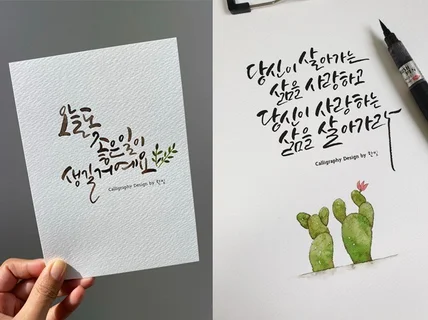 오늘도
좋은일이
생길거예요
Calligraphy Design by
당신이 살아가는
삶을 사랑하고
당신이 사랑하는
삶을 살아가라
Calligraphy Design by